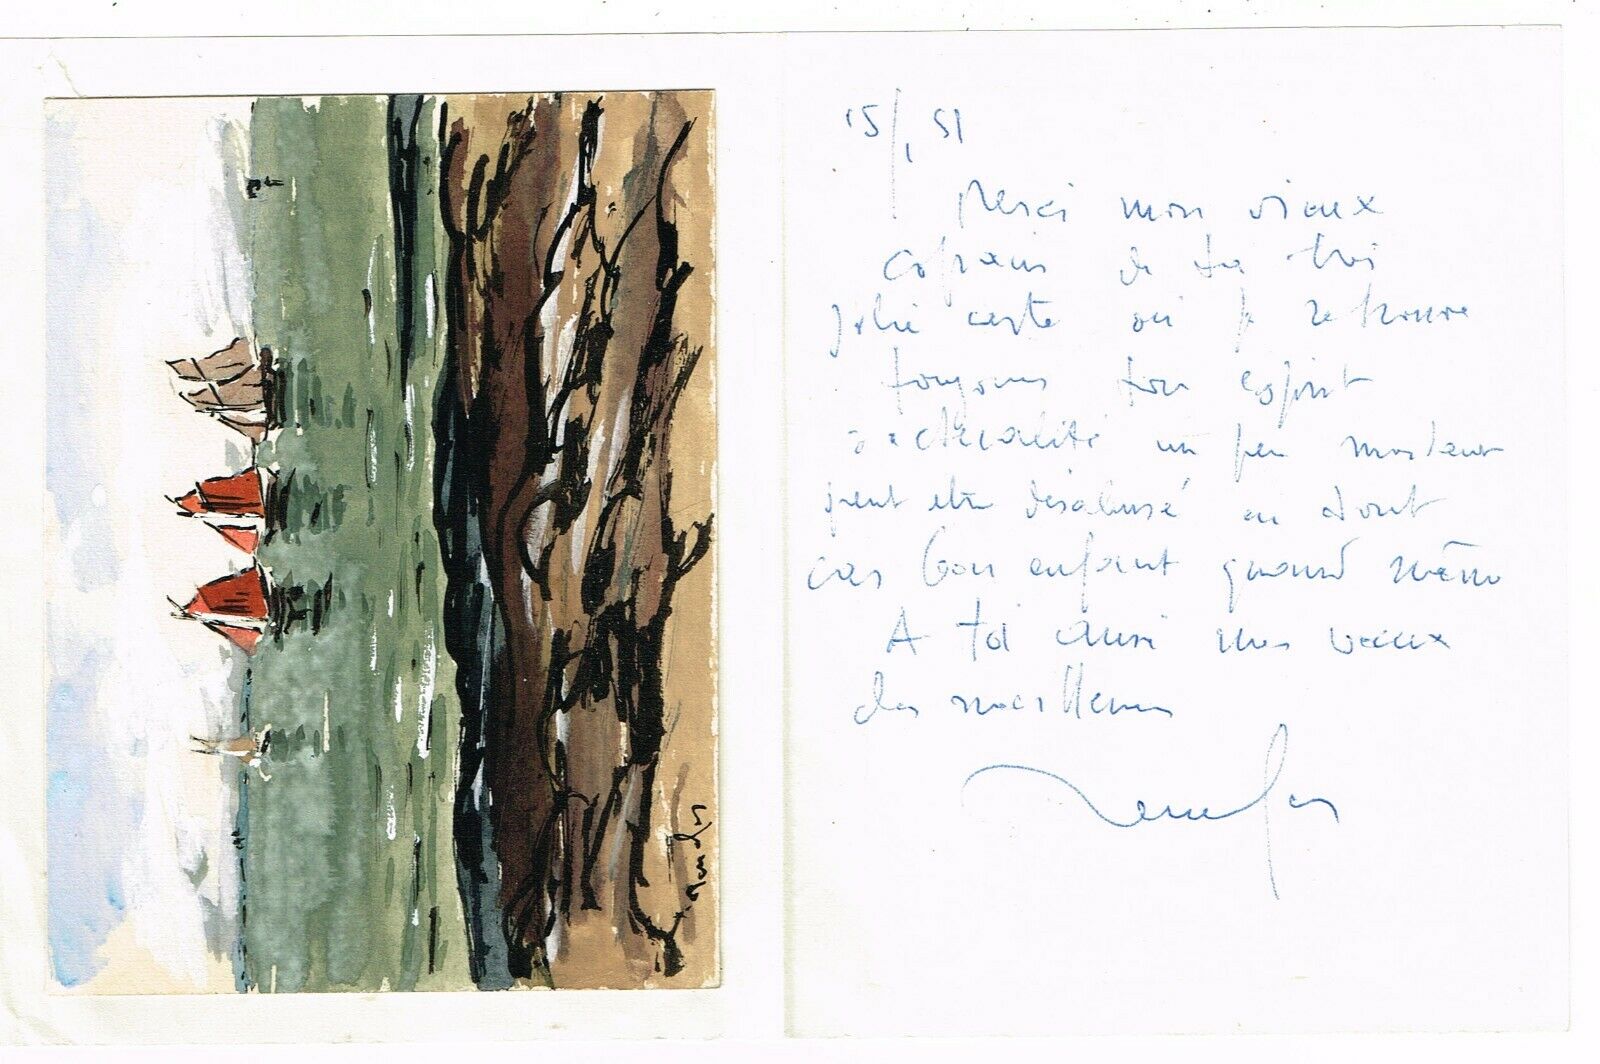 15/1 51
Merci mon vieux
copain de ta très
jolie carte où je retrouve
toujours ton esprit
un peu
peut être désabusé en tout
cas bon enfant quand même
A toi aussi mes vœux
les meilleurs